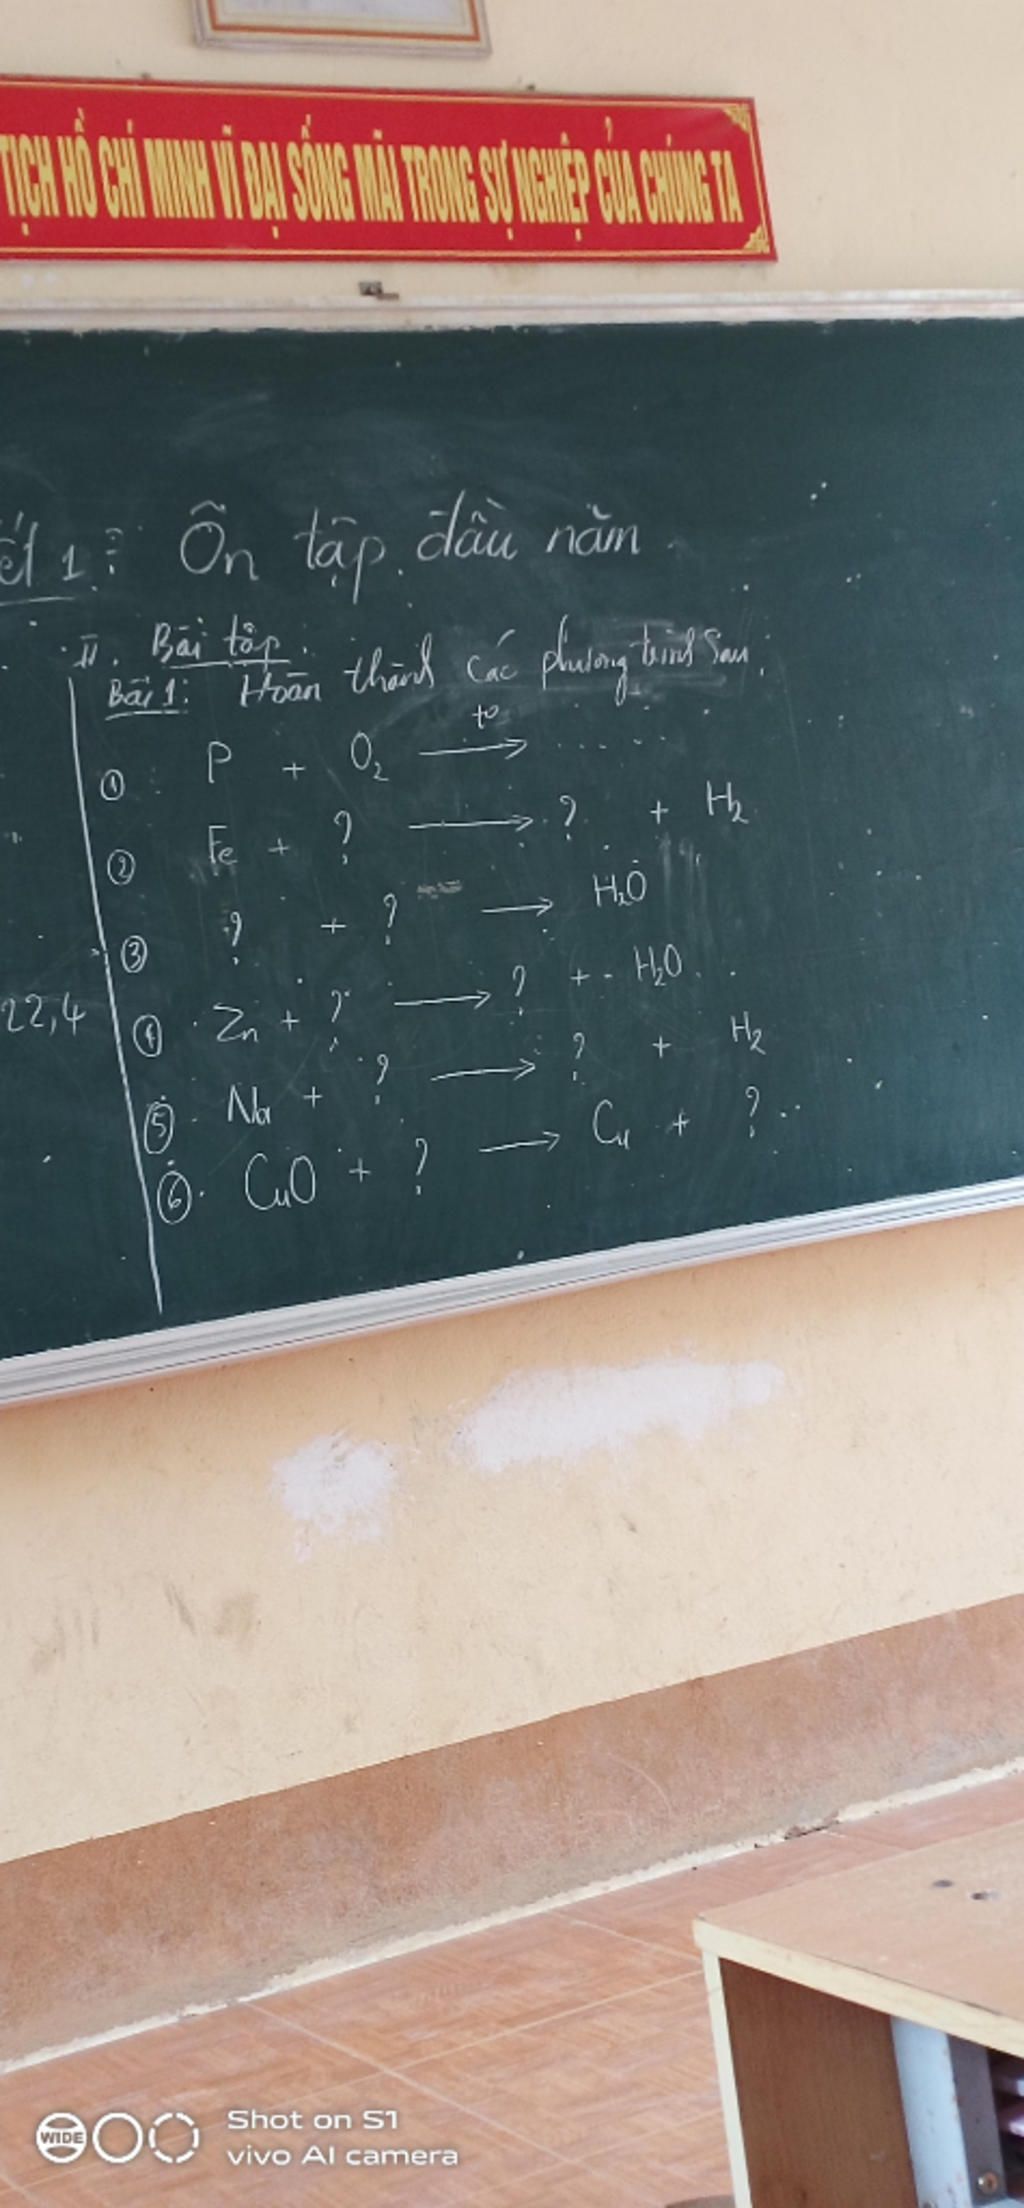 TỊCH HỒ CHÍ MINH VĨ ĐẠI SỐNG MÃI TRONG SỰ NGHIỆP CỦA CHÚNG TA
ết 1: Ôn tập đầu năm
II. Bài tập.
Bài 1: Hoàn thành các phương trình sau:
① P + O₂ —t°→ .....
② Fe + ? → ? + H₂
③ ? + ? → H₂O
22,4
④ Zn + ? → ? + H₂O
⑤ Na + ? → ? + H₂
⑥ CuO + ? → Cu + ?
WIDE
Shot on S1
vivo AI camera